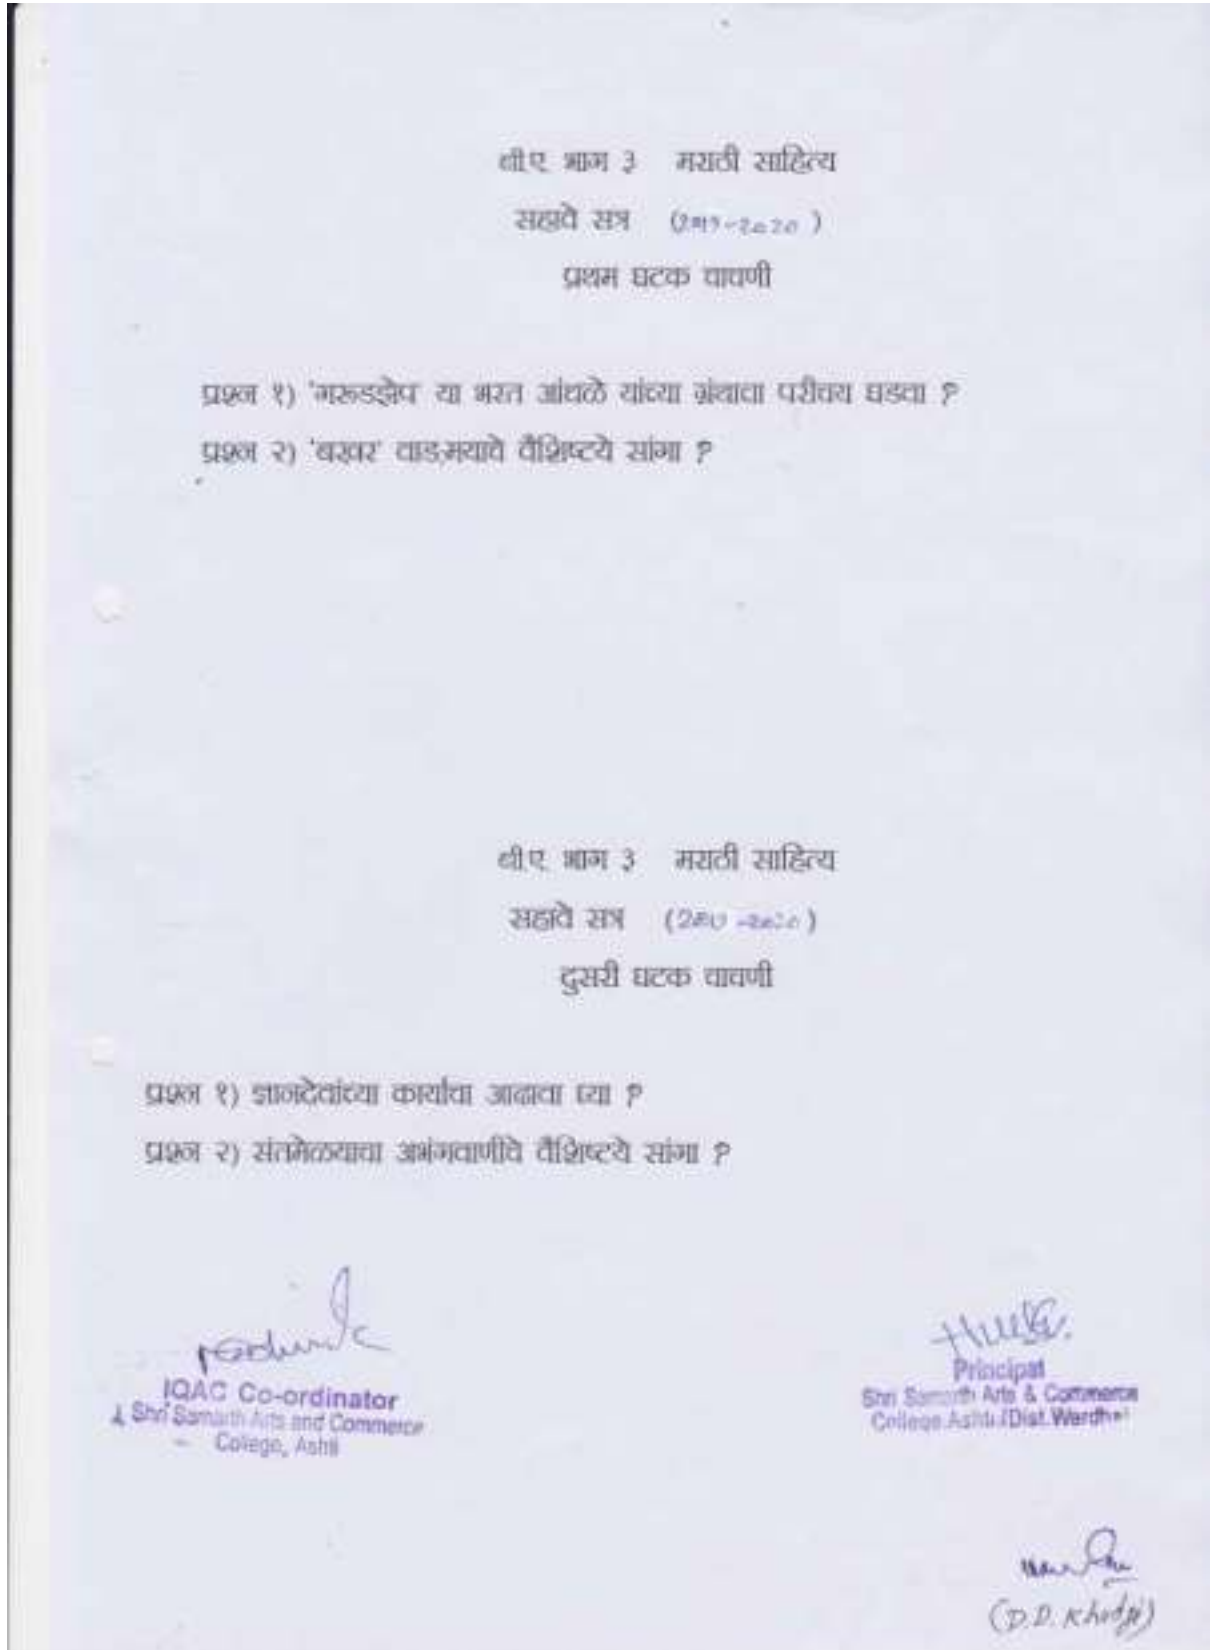 बी.ए. भाग ३ मराठी साहित्य
सहावे सत्र (2019-2020)
प्रथम घटक चाचणी
प्रश्न १) 'गरूडझेप' या भरत आंधळे यांच्या ग्रंथाचा परीचय घडवा ?
प्रश्न २) 'बखर' वाड.मयाचे वैशिष्टये सांगा ?
बी.ए. भाग ३ मराठी साहित्य
सहावे सत्र
दुसरी घटक चाचणी
प्रश्न १) ज्ञानदेवांच्या कार्याचा आढावा घ्या ?
प्रश्न २) संतमेळयाचा अभंगवाणीचे वैशिष्टये सांगा ?
IQAC Co-ordinator
Shri Samarth Arts and Commerce
College, Ashti
Principal
Shri Samarth Arts & Commerce
College Ashti (Dist.Wardha)
(D.D. Khodpi)